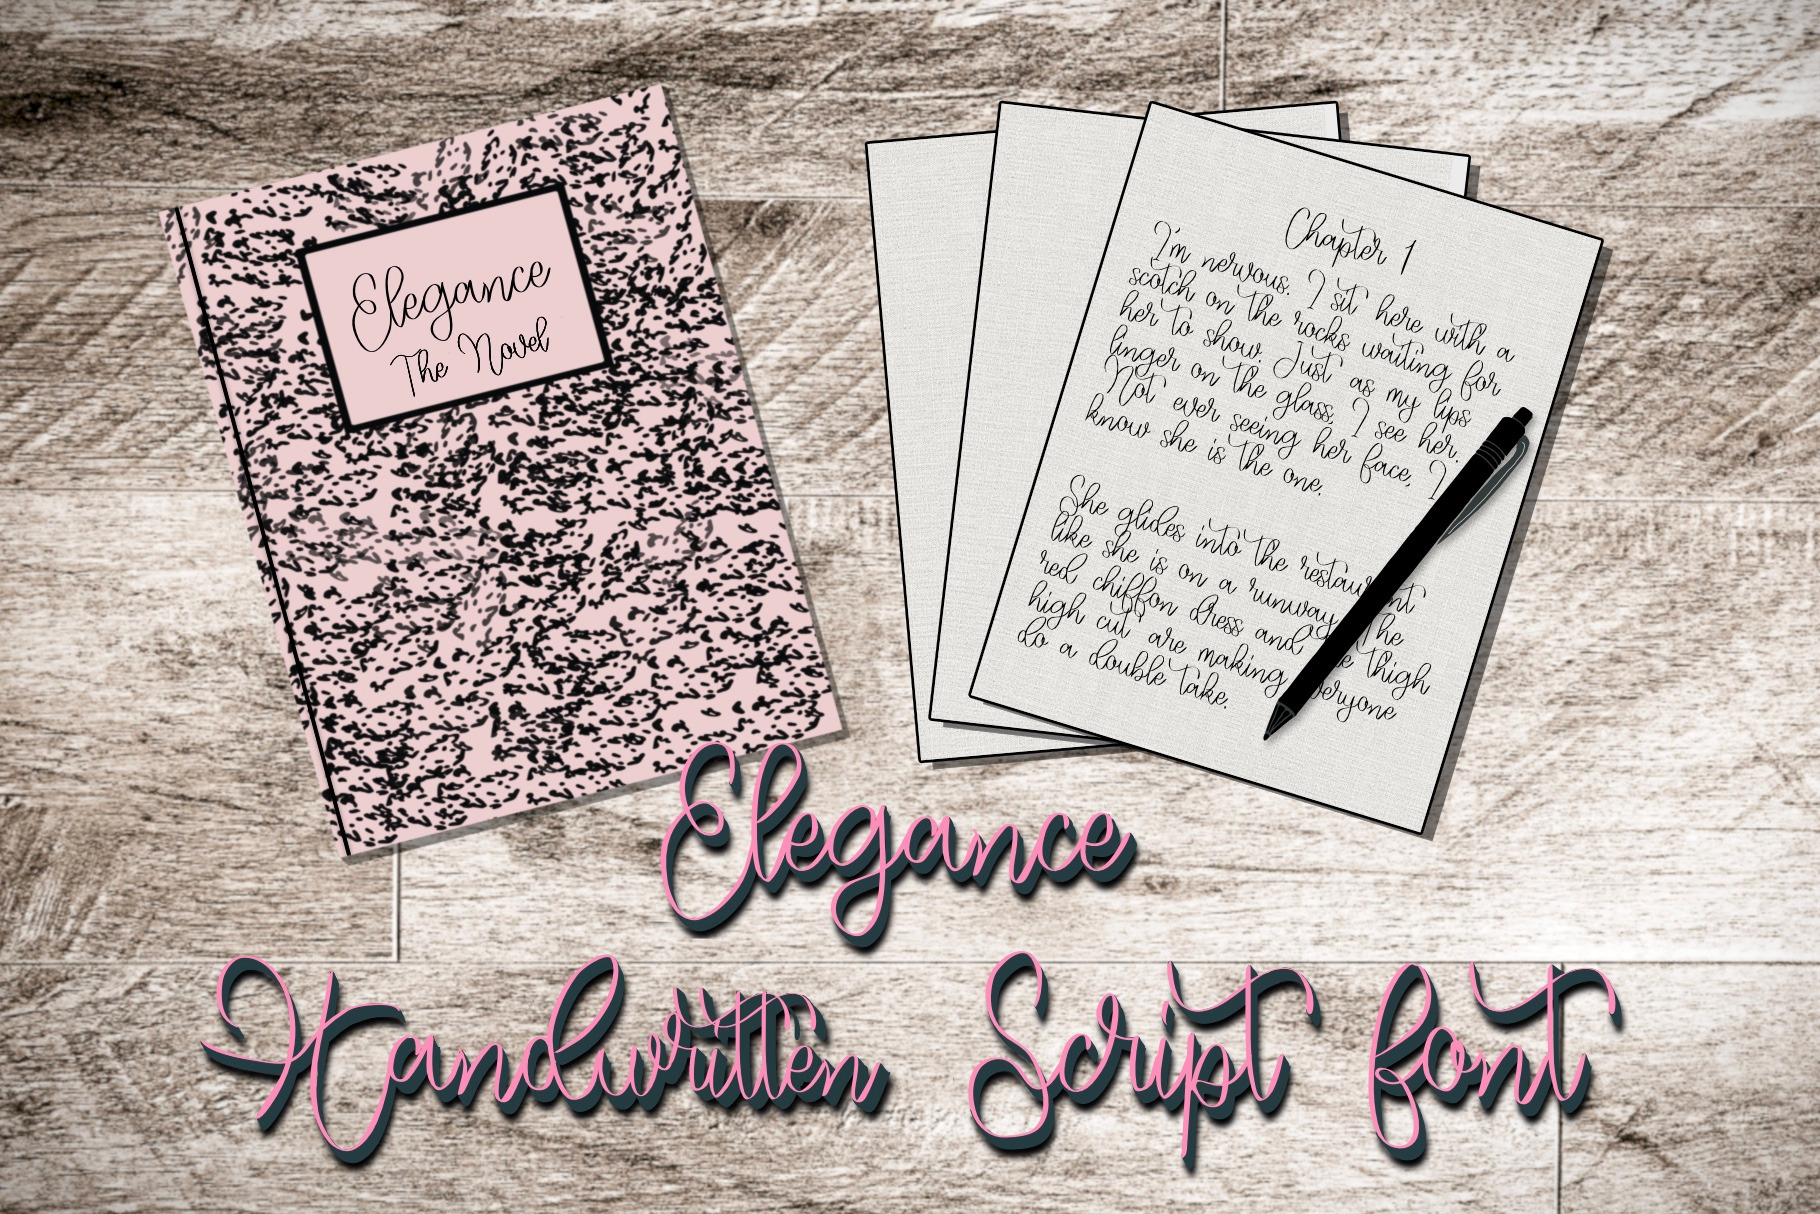 Elegance
The Novel
Chapter 1
I'm nervous. I sit here with a
scotch on the rocks waiting for
her to show. Just as my lips
linger on the glass, I see her.
Not ever seeing her face, I
know she is the one.
She glides into the
like she is on a runway
red chiffon dress and thigh
high cut are making
do a double take.
Elegance
Handwritten Script font